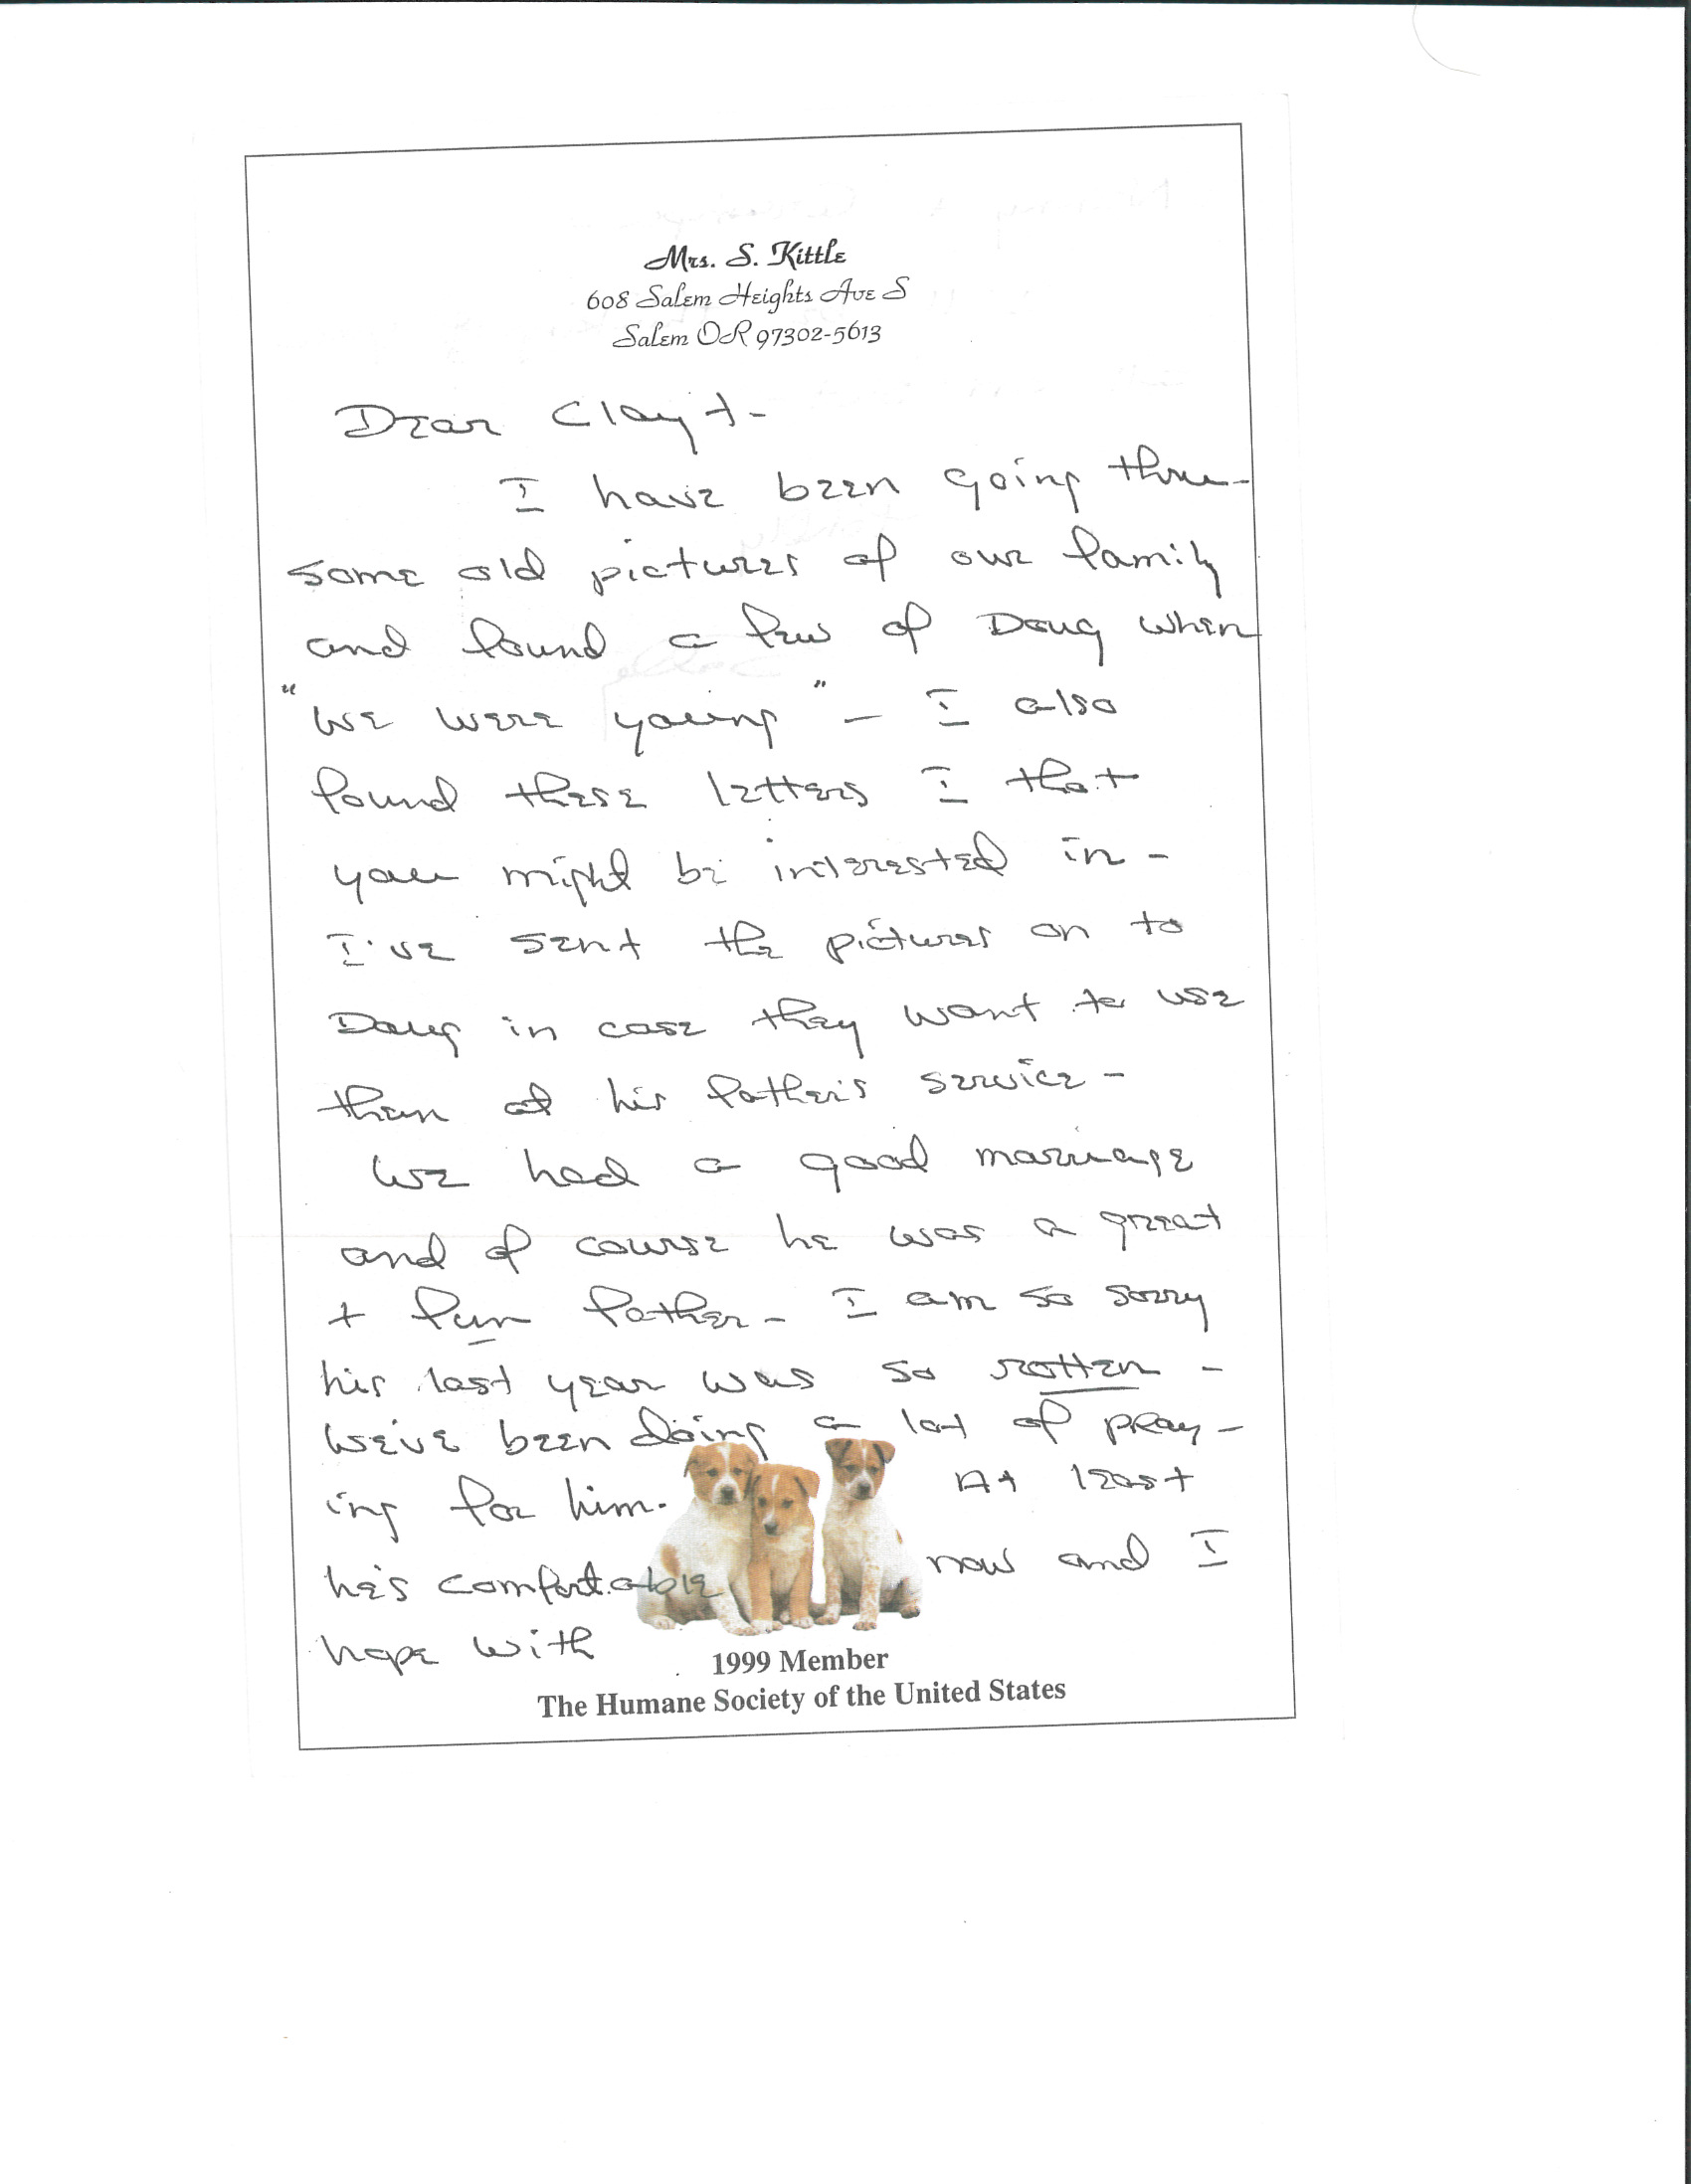 Mrs. S. Kittle
608 Salem Heights Ave S
Salem OR 97302-5613
Dear Clayt-
I have been going thru-
some old pictures of our family
and found a few of Doug when
"we were young" - I also
found these letters I that
you might be interested in -
I've sent the pictures on to
Doug in case they want to use
them at his father's service -
We had a good marriage
and of course he was a great
+ fun father - I am so sorry
his last year was so rotten -
We've been doing a lot of pray-
ing for him. At least
he's comfortable now and I
hope with
1999 Member
The Humane Society of the United States